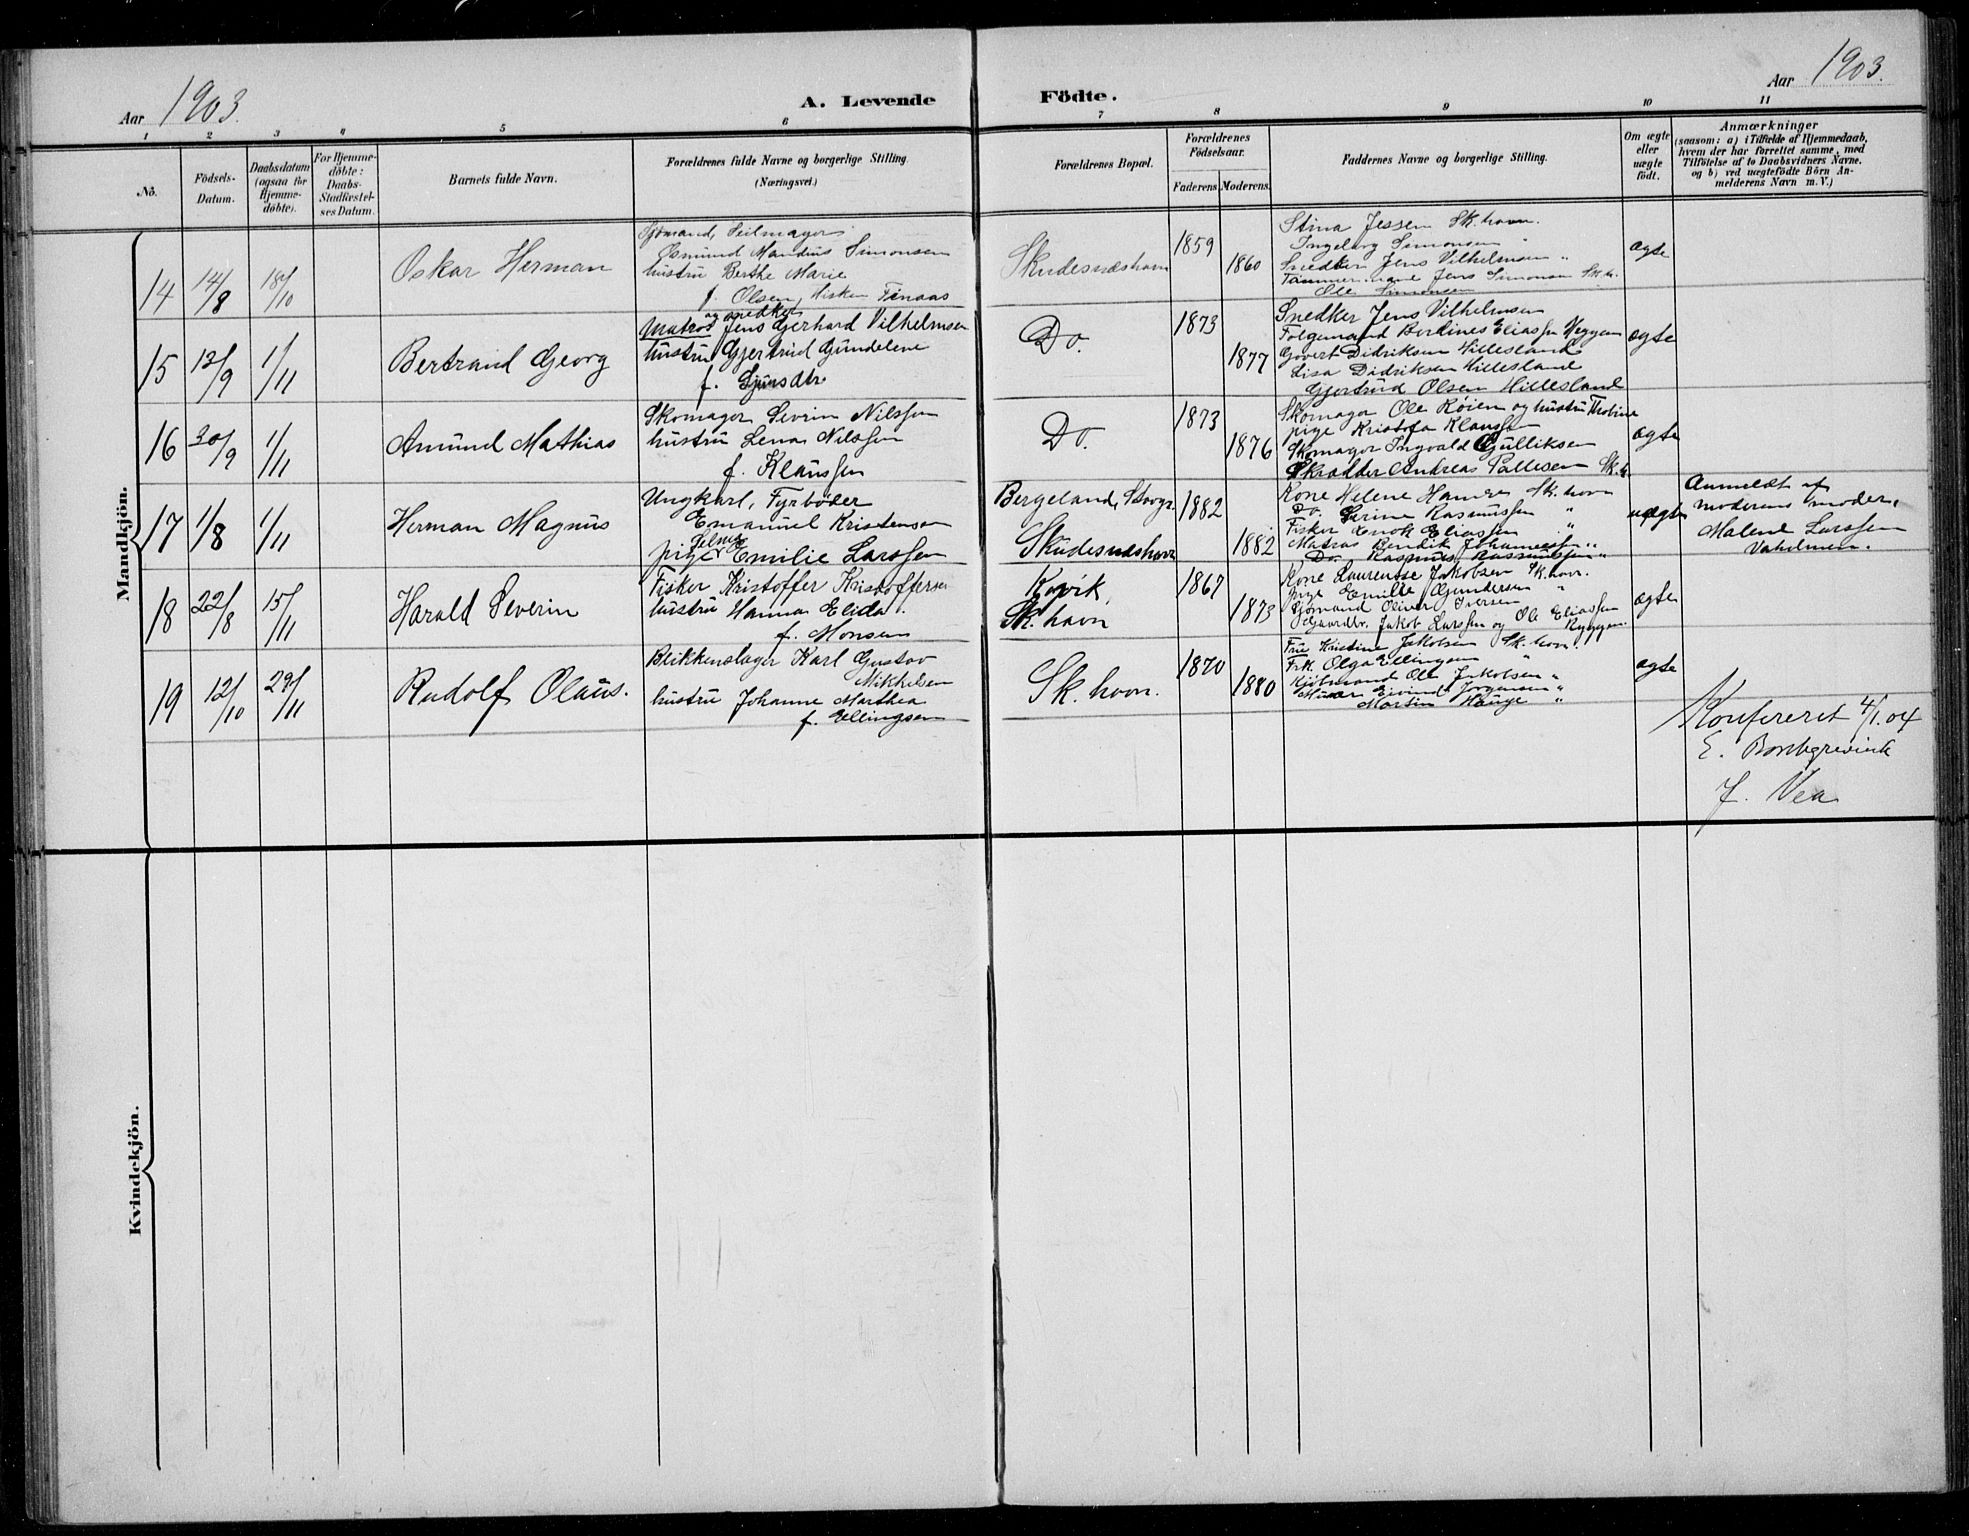 Aar 1903.
A. Levende Födte.
Aar 1903.
1 2 3 4 5 6 7 8 9 10 11
Nö.
Födsels-Datum.
Daabsdatum (ogsaa for Hjemme-döbte).
For Hjemme-döbte: Daabs-Stadfæstel-ses Datum.
Barnets fulde Navn.
Forældrenes fulde Navne og borgerlige Stilling.
(Næringsvei.)
Forældrenes Bopæl.
Forældrenes Födselsaar.
Faderens. Moderens.
Faddernes Navne og borgerlige Stilling.
Om ægte eller uægte födt.
Anmærkninger
(saasom: a) i Tilfælde af Hjemmedaab, hvem der har forrettet samme, med Tilföielse af to Daabsvidners Navne. og b) ved uægtefödte Börn An-melderens Navn m. V.)
Mandkjön.
14 14/8 18/10 Oskar Herman
Sjömand, Seilmager
Osmund Mandius Simonsen
hustru Berthe Marie
f. Olsen,
Skudesnæshavn
1859 1860
Stina Jessen Sk. havn.
Ingeborg Simonsen "
Snedker Jens Vilhelmsen "
Tømmermand Jens Simonsen Sk. h.
Ole Simonsen
ægte
15 13/9 1/11 Bertrand Georg
og snedker
Matros Jens Gerhard Vilhelmsen
hustru Gjertrud Gundelene
f. Sjursdtr.
Do.
1873 1877
Snedker Jens Vilhelmsen
Folgemand Berdines Eliassen Heggem
Govert Didriksen Hillesland
Lisa Didriksen Hillesland
Gjertrud Olsen Hillesland
ægte
16 30/9 1/11 Amund Mathias
Skomager Sevrin Nilssen
hustru Lena Nilssen
f. Klaussen
Do.
1873 1876
Skomager Ole Røien og hustru Thobine
pige Kristofa Klaussen
Skomager Ingvald Gulliksen
Skrædder Andreas Pallesen Sk. h.
ægte
17 1/8 1/11 Herman Magnus
Ungkarl, Fyrbøder
Emanuel Kristensen
Selma
pige Emilie Larssen
Bergeland, Stavgr.
Skudesnæshavn
1882 1882
Kone Helene Hansen Sk. havn
Do. Serine Rasmussen "
Fisker Enok Eliassen "
Matros Bendik Johannessen "
Do. Rasmus Rasmussen "
uægte
Anmeldt af
moderens moder,
Malene Larssen
18 22/8 15/11 Harald Severin
Fisker Kristoffer Kristoffersen
hustru Hanna Elida
f. Monsen
Kirvik,
Sk. havn
1867 1873
Kone Laurentse Jakobsen Sk. havn.
pige Emilie Gundersen "
Sjømand Oliver Iversen
Gaardbr. Jakob Larssen og Ole Eliassen
Ryggen.
ægte
19 12/10 29/11 Rudolf Olaus.
Blikkenslager Karl Gustav
Mikkelsen
hustru Johanne Marthea
f. Ellingsen
Sk. havn.
1870 1880
Frue Kristine Jakobsen Sk. havn.
Frk. Olga Ellingsen "
Kjöbmand Ole Jakobsen "
Murer Eivind Jørgensen "
Martin Hauge "
ægte
Konfereret 4/1.04
E. Borchgrevink
J. Vea
Kvindekjön.